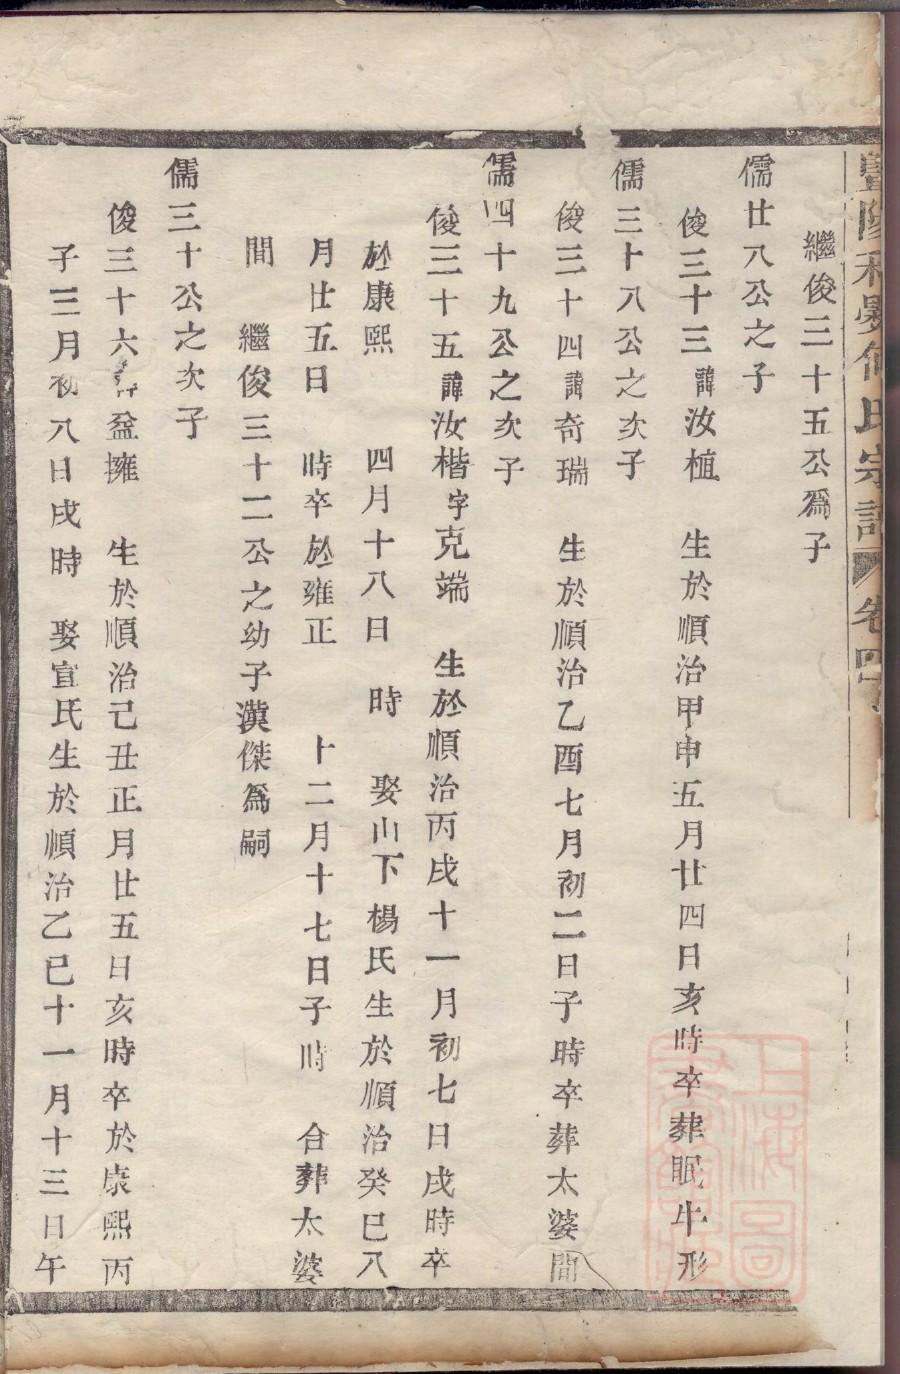 繼俊三十五公爲子
儒廿八公之子
俊三十三諱汝植 生於順治甲申五月廿四日亥時卒葬眠牛形
儒三十八公之次子
俊三十四諱奇瑞 生於順治乙酉七月初二日子時卒葬太婆間
儒四十九公之次子
俊三十五諱汝楷字克端 生於順治丙戌十一月初七日戌時卒
於康熙 四月十八日 時 娶山下楊氏生於順治癸巳八
月廿五日 時卒於雍正 十二月十七日子時 合葬太婆
間 繼俊三十二公之幼子漢傑爲嗣
儒三十公之次子
俊三十六 益擁 生於順治己丑正月廿五日亥時卒於康熙丙
子三月初八日戌時 娶宣氏生於順治乙巳十一月十三日午
氏宗譜 卷四
上海圖